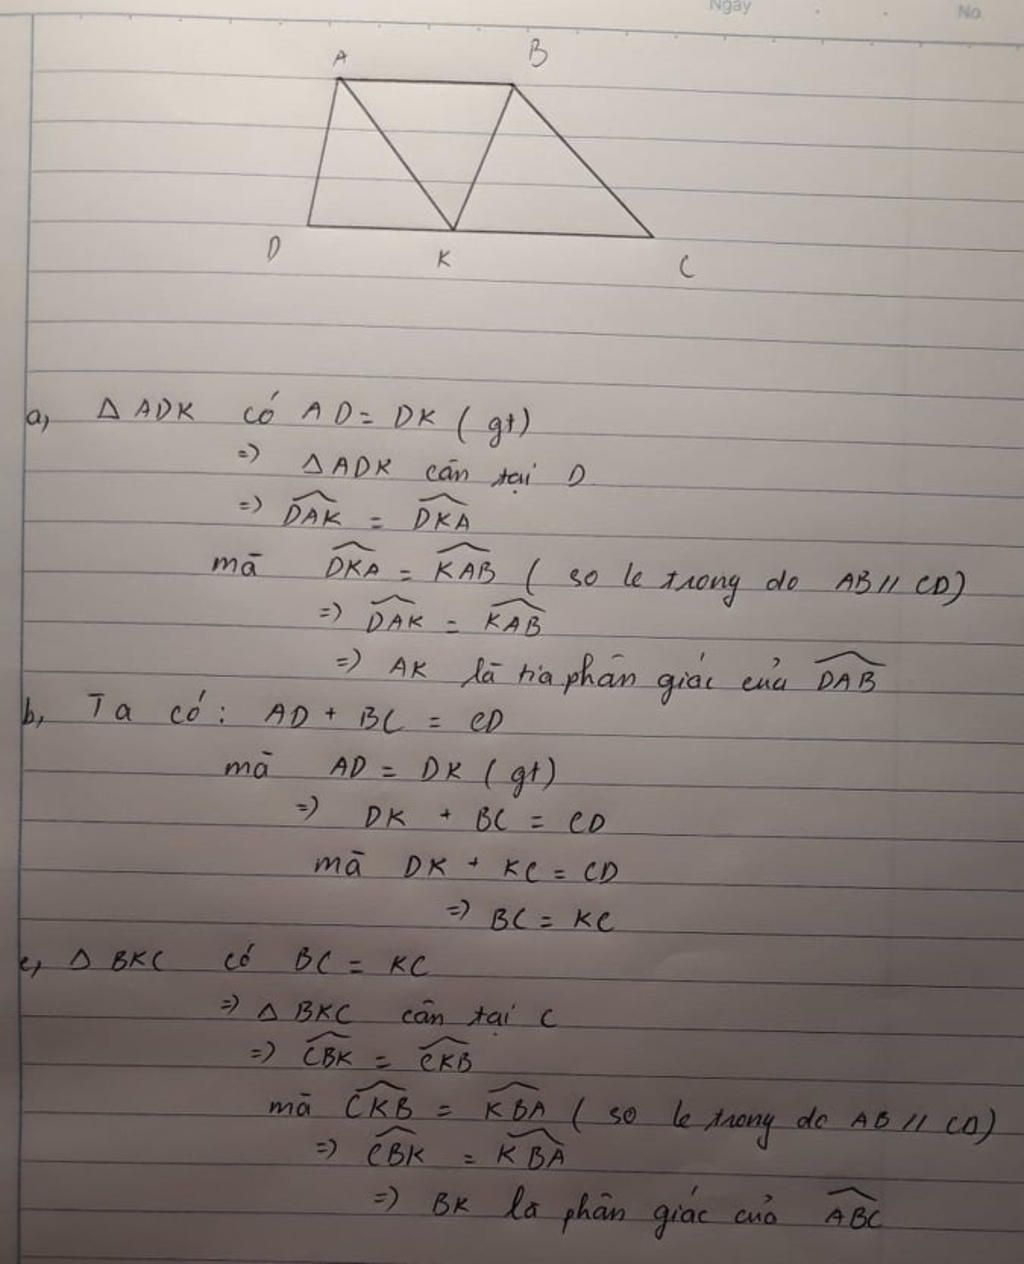 Ngày
No
A
B
D
K
C
a, Δ ADK có AD = DK ( gt)
=) ΔADK cân tại D
=) \widehat{DAK} = \widehat{DKA}
mà \widehat{DKA} = \widehat{KAB} ( so le trong do AB // CD)
=) \widehat{DAK} = \widehat{KAB}
=) AK là tia phân giác của \widehat{DAB}
b, Ta có : AD + BC = CD
mà AD = DK ( gt)
=) DK + BC = CD
mà DK + KC = CD
=) BC = KC
c, Δ BKC có BC = KC
=) Δ BKC cân tại C
=) \widehat{CBK} = \widehat{CKB}
mà \widehat{CKB} = \widehat{KBA} ( so le trong do AB // CD)
=) \widehat{CBK} = \widehat{KBA}
=) BK là phân giác của \widehat{ABC}